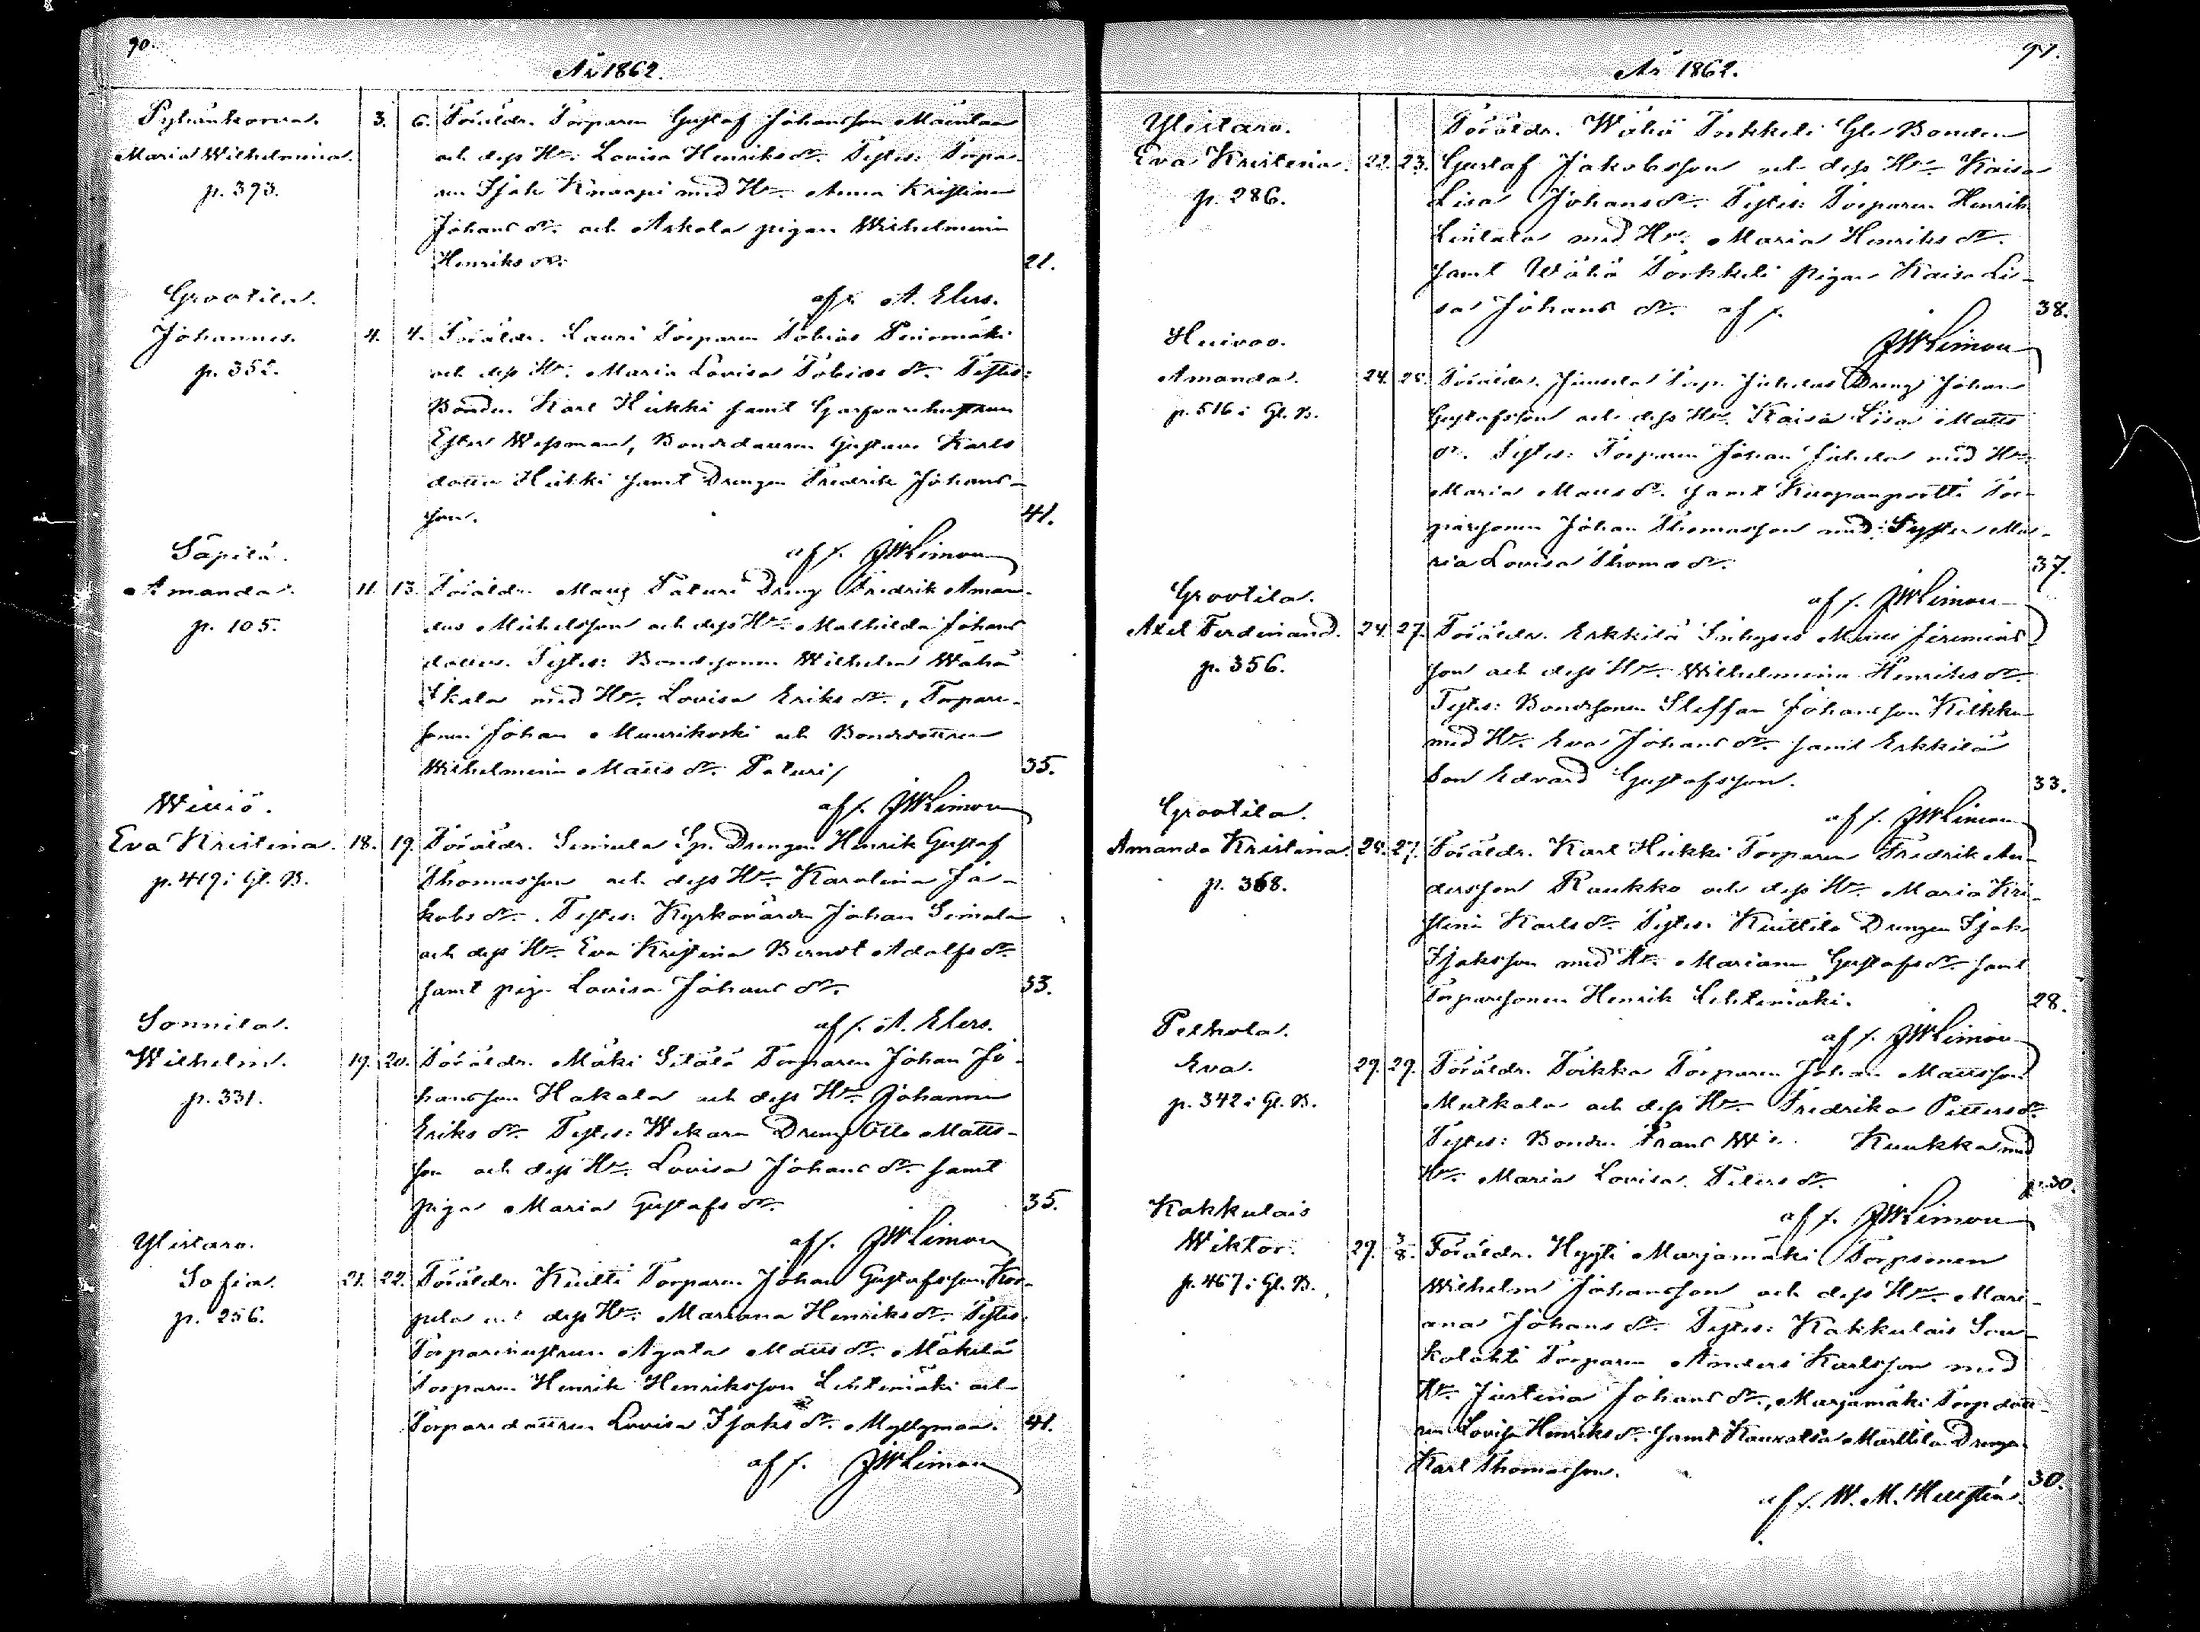 90.
År 1862.
Pyhänkorva.
Maria Wilhelmina.
p. 393.
3. 6. Föräldr. Torparen Gustaf Johansson Mäentaa
och dess Hu: Lovisa Henriksdr. Testes: Torpa-
ren Isak Knaapi med Hu Anna Kristina
Johansdr. och Askola pigan Wilhelmina
Henriksdr: 21.
af: A. Elers.
Grootila.
Johannes.
p. 352.
4. 4. Föräldr. Lauri Torparen Tobias Peiomäki
och dess Hu. Maria Lovisa Tobiasdr. Testes:
Bonden Karl Heikki samt Garfvarehustrun
Ester Wessman, Bondedottren Gustava Karls
dotter Heikki samt Drengen Fredrik Johans-
son. 41.
af f. JWLimon
Säpilä.
Amanda.
p. 105.
11. 13. Föräldr. Mauz Paturi Dreng Fredrik Aman-
dus Michelsson och dess Hu. Mathilda Johans
dotter. Testes: Bondesonen Wilhelm Wähä
Ikala med Hu. Lovisa Eriksdr., Torpare-
sonen Johan Muurikoski och Bondedottren
Wilhelmina Mattsdr. Paturi 35.
af f. JWLimon
Wiiiö.
Eva Kristina.
p. 419 i Gl. B.
18. 19. Föräldr. Simula Sp. Drengen Henrik Gustaf
Thomasson och dess Hu. Karolina Ja-
kobsdr. Testes: Kyrkovärden Johan Simola
och dess Hu Eva Kristina Berndt Adolfsdr.
samt pigan Lovisa Johansdr. 33.
af f. A. Elers.
Sonnila.
Wilhelm.
p. 331.
19. 20. Föräldr. Mäki Sitälä Torparen Johan Jo-
hansson Hakala och dess Hu Johanna
Eriksdr. Testes: Wekara Dreng Otto Matts-
son och dess Hu. Lovisa Johansdr. samt
pigan Maria Gustafsdr. 35.
af f. JWLimon
Ylistaro.
Sofia.
p. 256.
21. 22. Föräldr. Knutti Torparen Johan Gustafsson Kor-
pela och dess Hu: Mariana Henriksdr. Testes:
Torparehustrun Agata Mattsdr. Mäkilä
Torparen Henrik Henriksson Lehtimäki och
Torparedottren Lovisa Isaksdr. Myllymaa. 41.
af f. JWLimon
91.
År 1862.
Ylistaro.
Eva Kristina.
p. 286.
22. 23. Föräldr. Wähä Torkkeli Gle Bonden
Gustaf Jakobsson och dess Hu Kaisa
Lisa Johansdr. Testes: Torparen Henrik
Leulala med Hu. Maria Henriksdr.
samt Wähä Torkkeli pigan Kaisa Li-
sa Johansdr. af f. 38.
JWLimon
Huivoo.
Amanda.
p. 516 i Gl. B.
24. 25. Föräldr. Torp. Dreng Johan
Gustafsson och dess Hu. Kaisa Lisa Matts
dr. Testes: Torparen Johan med Hu:
Maria Mattsdr. samt Tor-
paresonen Johan Thomasson med Syster Ma-
ria Lovisa Thomasdr. 37.
af f. JWLimon
Grootila.
Axel Ferdinand.
p. 356.
24. 27. Föräldr. Erkkilä Inhyses Matts Jeremias
son och dess Hu. Wilhelmina Henriksdr.
Testes: Bondesonen Steffan Johansson Kilkku
med Hu. Eva Johansdr. samt Erkkilä
Son Edvard Gustafsson. 33.
af f. JWLimon
Grootila.
Amanda Kristina.
p. 368.
24. 27. Föräldr. Karl Heikki Torparen Fredrik An-
dersson Raukko och dess Hu. Maria Kri-
stina Karlsdr. Testes: Knuttila Drengen Isak
Isaksson med Hu. Mariana Gustafsdr. samt
Torparesonen Henrik Lehtimäki. 28.
af f. JWLimon
Pelkola.
Eva.
p. 342 i Gl. B.
29. 29. Föräldr. Toikka Torparen Johan Mattsson
Mulkala och dess Hu. Fredrika Pettersdr.
Testes: Bonden Frans Kuukka med
Hu. Maria Lovisa Petersdr. 30.
af f. JWLimon
Kakkulais
Wiktor.
p. 467 i Gl. B.
29. 3/8. Föräldr. Hyyti Marjamäki Torpsonen
Wilhelm Johansson och dess Hu. Mari-
ana Johansdr. Testes: Kakkulais Sou-
kolahti Torparen Anders Karlsson med
Hu. Justina Johansdr., Marjamäki Torpdott-
ren Lovisa Henriksdr. samt Kauvatsa Marttila Drengen
Karl Thomasson. 30.
af f. W. M.